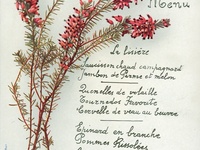 Menu
La Rivière
Saucisson chaud campagnard
Jambon de Parme et melon
Quenelles de volaille
Tournedos Favorite
Cervelle de veau au beurre
Epinard en branche
Pommes Rissolées